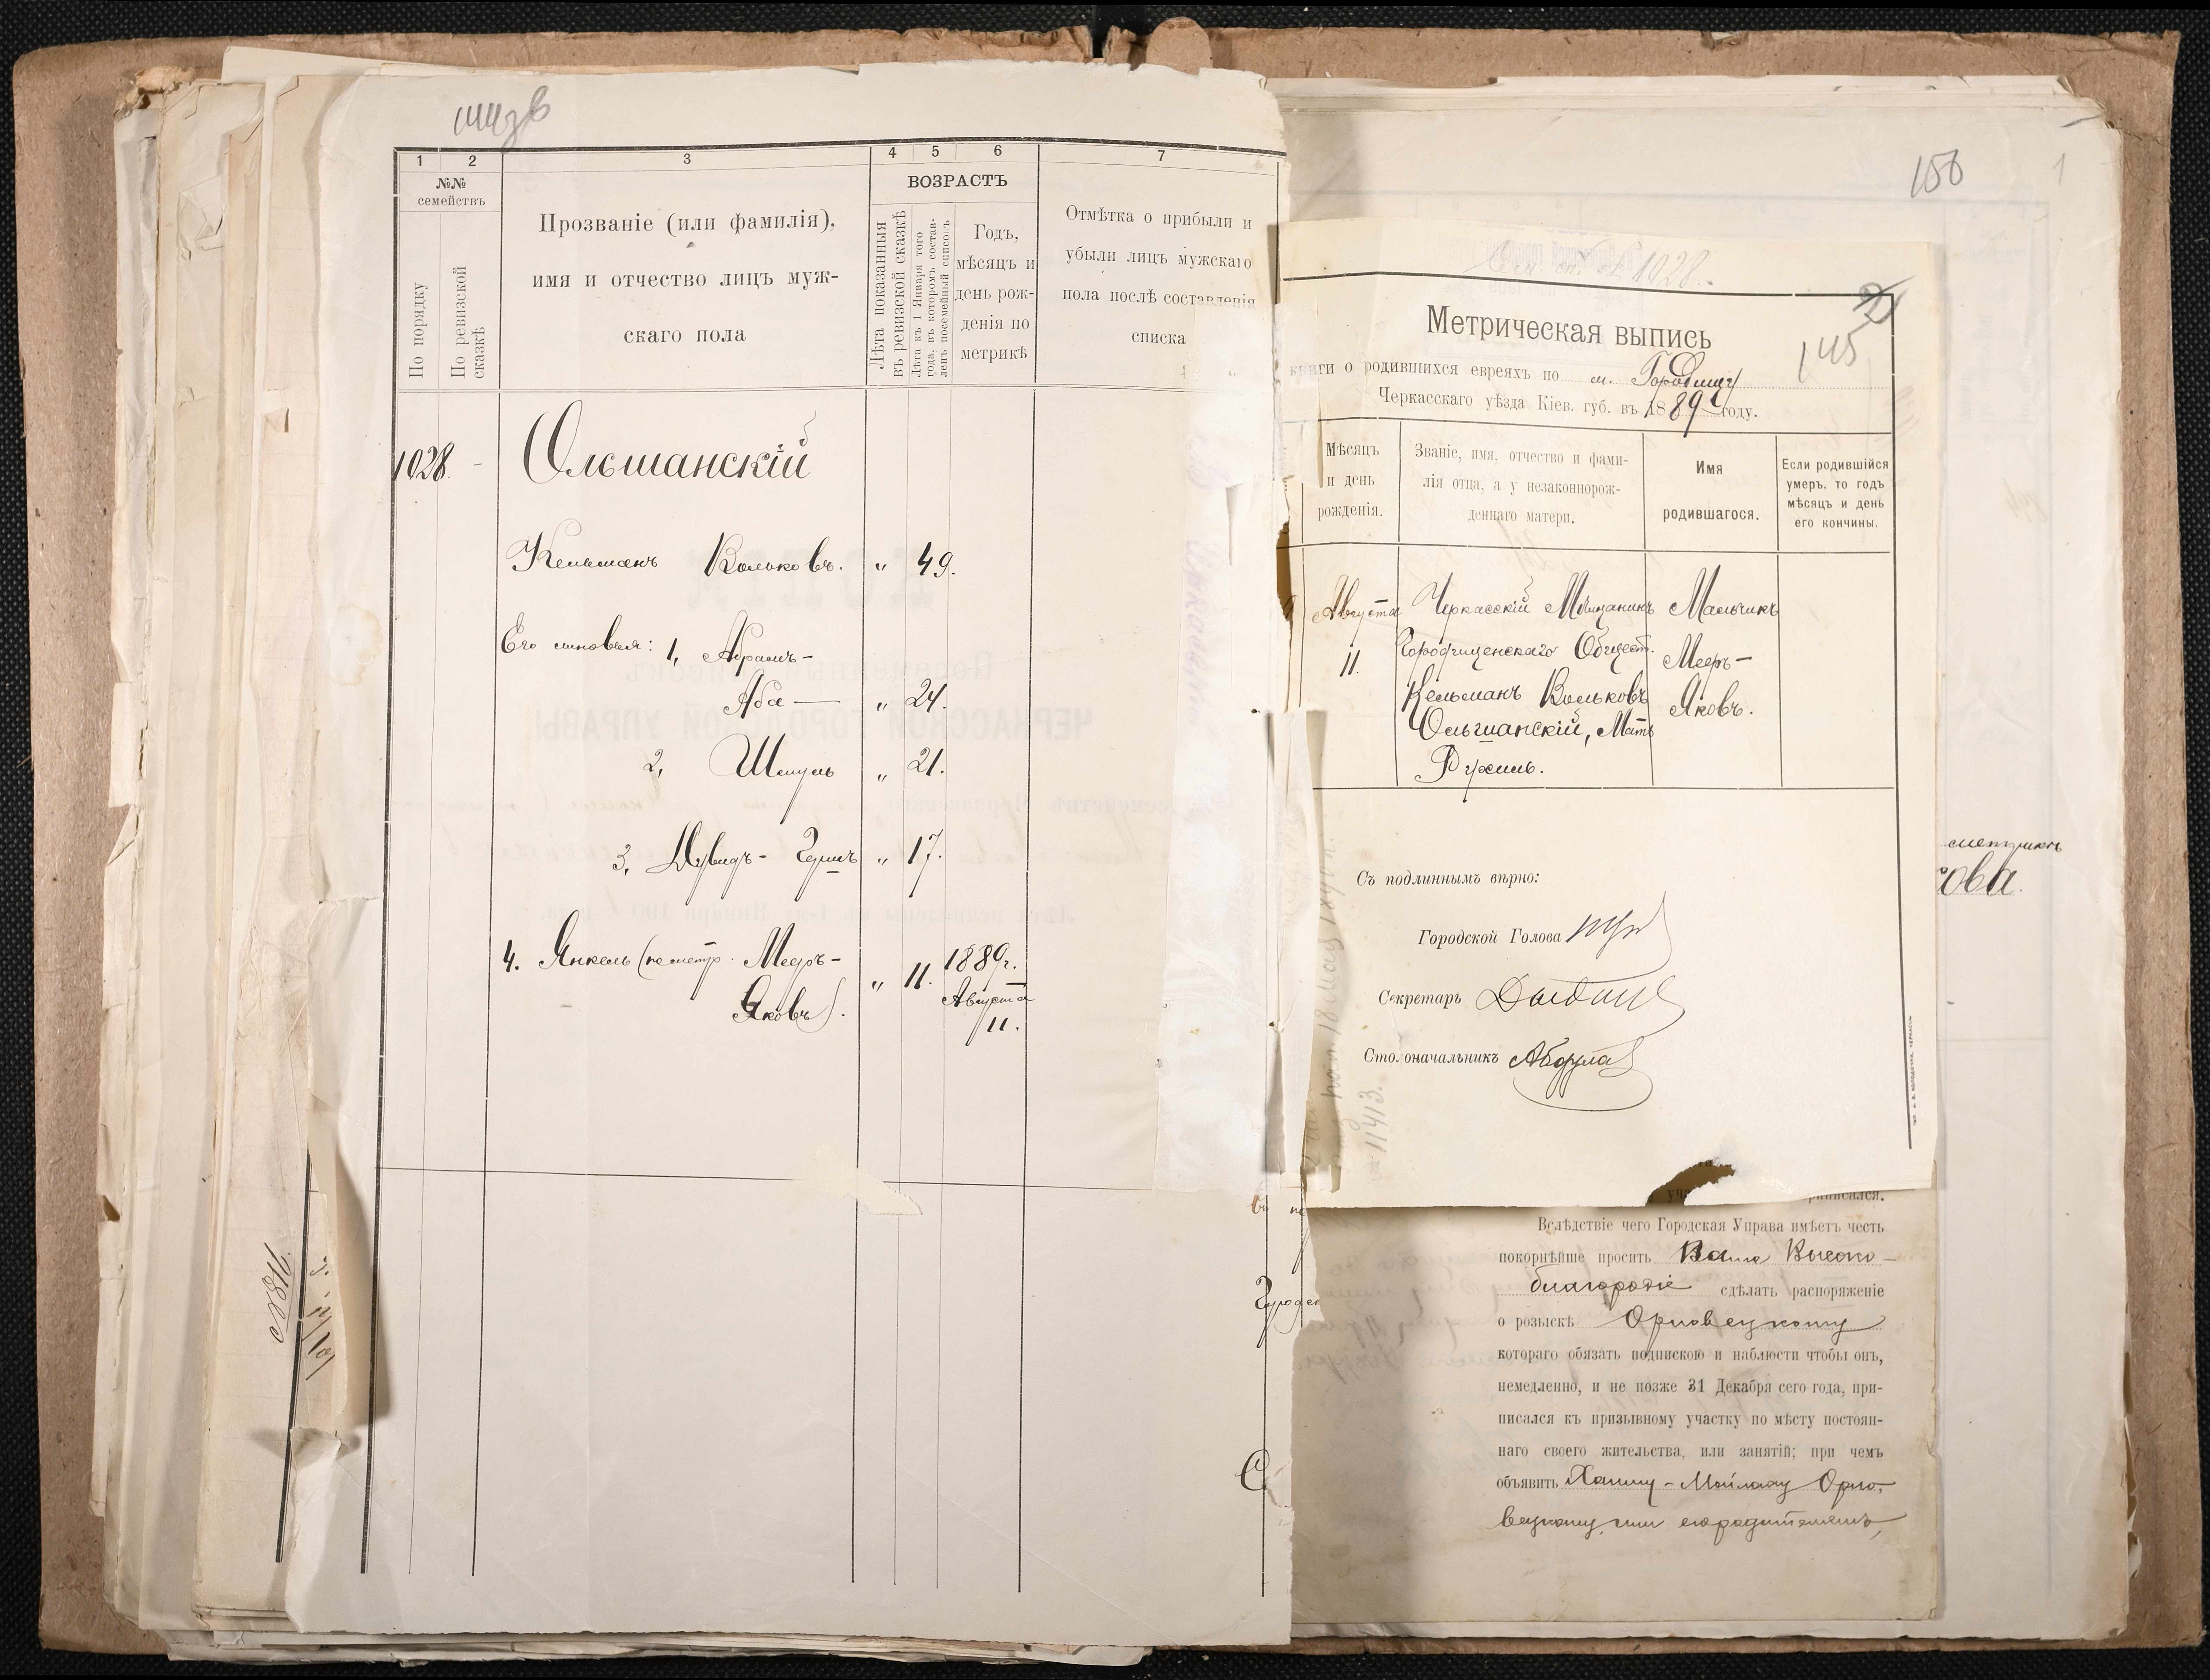 1 2 3 4 5 6 7
№№
семействъ
По порядку
По ревизской
сказкѣ
Прозваніе (или фамилія),
имя и отчество лицъ муж-
скаго пола
ВОЗРАСТЪ
Лѣта показанныя
въ ревизской сказкѣ
Лѣта къ 1 Января того
года, въ которомъ состав-
ленъ посемейный списокъ
Годъ,
мѣсяцъ и
день рож-
денія по
метрикѣ
Отмѣтка о прибыли и
убыли лицъ мужскаго
пола послѣ составленія
списка
1028. Ольшанскій
Кельманъ Вольковъ. „ 49.
Его сыновья: 1, Абрамъ-
Аба — „ 24.
2, Шмуль „ 21.
3, Дувидъ- Гершъ „ 17.
4. Янкель (по метр. Мееръ- „ 11. 1889г.
Яковъ). Августа
11.
№ 816.
150
1
1028.
2
145
Метрическая выпись
книги о родившихся евреяхъ по м. Городищу
Черкасскаго уѣзда Кіев. губ. въ 1889 году.
Мѣсяцъ
и день
рожденія.
Званіе, имя, отчество и фами-
лія отца, а у незаконнорож-
деннаго матери.
Имя
родившагося.
Если родившійся
умеръ, то годъ
мѣсяцъ и день
его кончины.
Августа Черкасскій Мѣщанинъ Мальчикъ
Городищенскаго Общест.
11. Мееръ-
Кельманъ Вольковъ
Яковъ.
Ольшанскій, Мать
Рухль.
Съ подлиннымъ вѣрно:
Городской Голова
Секретарь
Столоначальникъ
11413.
метрикѣ
кова.
Вслѣдствіе чего Городская Управа имѣетъ честь
покорнѣйше просить Ваше Высоко-
благородіе сдѣлать распоряженіе
о розыскѣ Орловецкому
котораго обязать подпискою и наблюсти чтобы онъ,
немедленно, и не позже 31 Декабря сего года, при-
писался къ призывному участку по мѣсту постоян-
наго своего жительства, или занятій; при чемъ
объявить Хаиму-Мойше Орло-
вецкому, или его родителямъ,